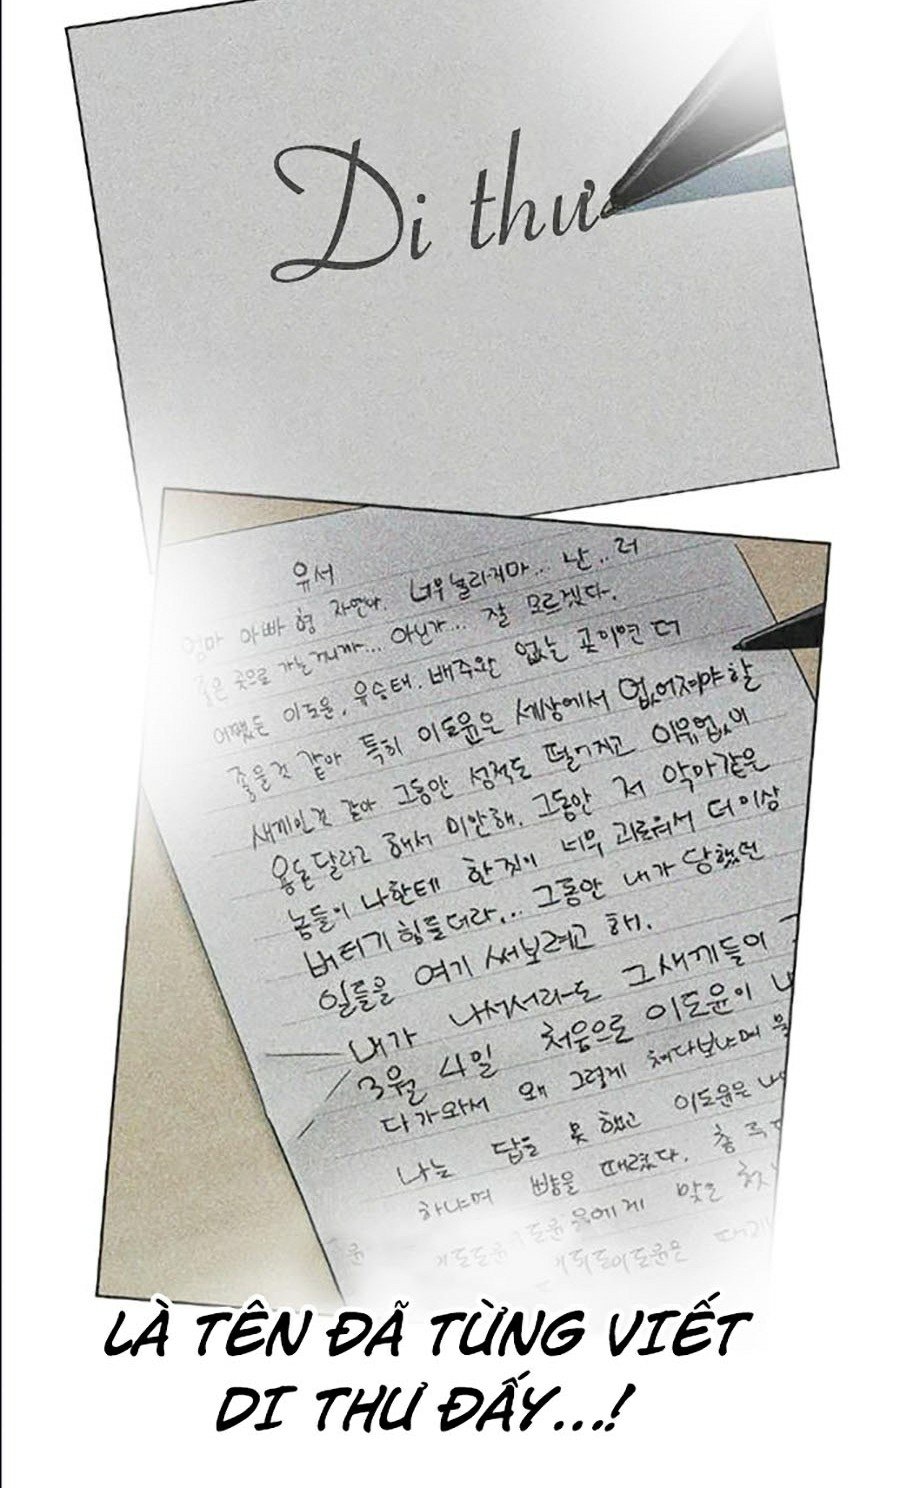 Di thư
유서
엄마 아빠 형 자연아. 너무 놀라지마... 난.. 더
좋은 곳으로 가는거니까... 아닌가... 잘 모르겠다.
어쨌든 이도윤, 유승태, 배주완 없는 곳이면 더
좋을것 같아 특히 이도윤은 세상에서 없어져야 할
새끼인것 같아 그동안 성적도 떨어지고 이유없이
용돈달라고 해서 미안해. 그동안 저 악마같은
놈들이 나한테 한짓이 너무 괴로워서 더이상
버티기 힘들더라... 그동안 내가 당했던
일들을 여기 써보려고 해.
내가 나서서라도 그새끼들이
3월 4일 처음으로 이도윤이
다가와서 왜 그렇게 쳐다보냐며
나는 답을 못했고 이도윤은
하냐며 뺨을 때렸다.
에게 맞은
LÀ TÊN ĐÃ TỪNG VIẾT
DI THƯ ĐẤY...!